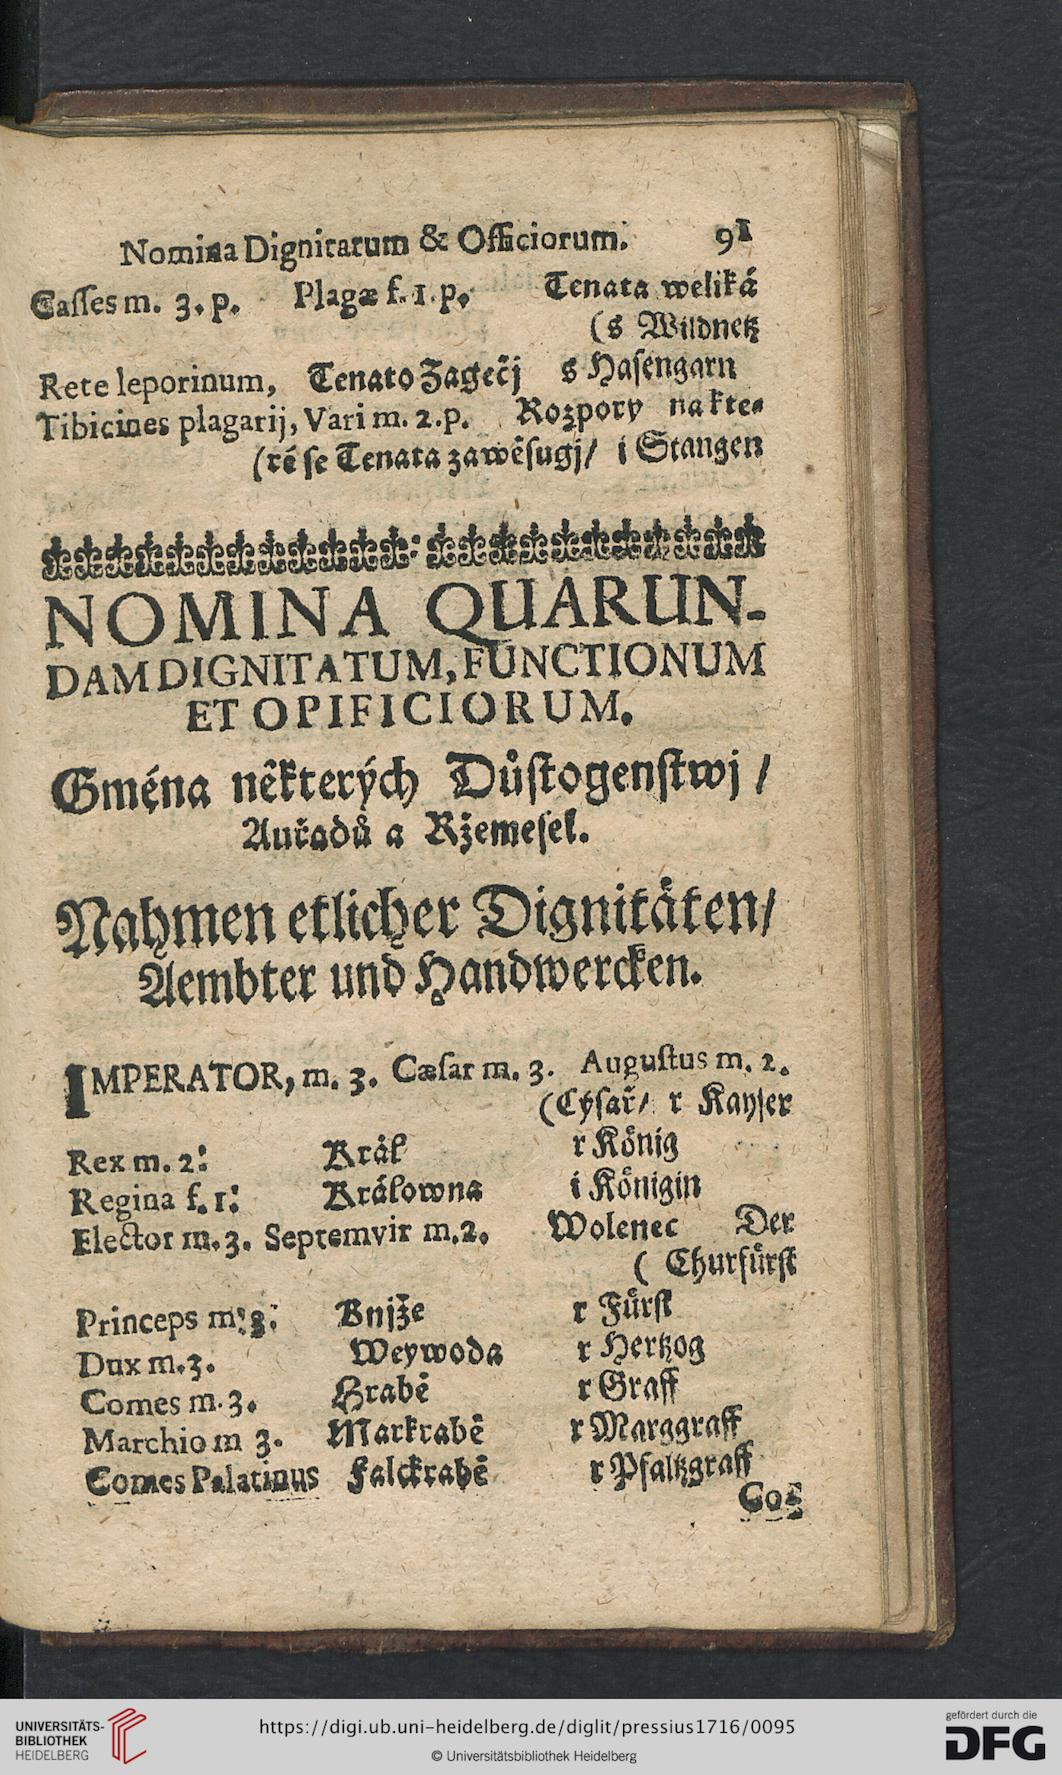 Nomina Dignitatum & Officiorum. 91
Casses m. 3. p. Plagæ f. 1. p. Tenata weliká
(s Wildnetz
Rete leporinum, Tenato Zagečj s Hasengarn
Tibicines plagarij, Vari m. 2. p. Rozpory na kte-
(ré se Tenata zawěsugj / i Stangen
NOMINA QUARUN-
DAM DIGNITATUM, FUNCTIONUM
ET OPIFICIORUM.
Gména některých Důstogenstwj /
Auřadů a Ržemesel.
Nahmen etlicher Dignitäten /
Aembter und Handwercken.
IMPERATOR, m. 3. Cæsar m. 3. Augustus m. 2.
(Cýsař / r Kayser
Rex m. 2: Král r König
Regina f. 1: Králowna i Königin
Elector m. 3. Septemvir m. 2. Wolenec Der
( Churfürst
Princeps m: 3: Knjže r Fürst
Dux m. 3. Weywoda r Hertzog
Comes m. 3. Hrabě r Graff
Marchio m 3. Markrabě r Marggraff
Comes Palatinus Falckrabě r Pfaltzgraff
Co-
UNIVERSITÄTS-
BIBLIOTHEK
HEIDELBERG
https://digi.ub.uni-heidelberg.de/diglit/pressius1716/0095
© Universitätsbibliothek Heidelberg
gefördert durch die
DFG